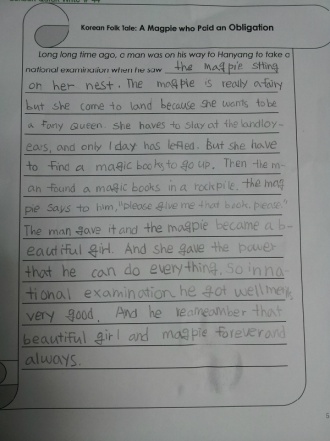 Korean Folk Tale: A Magpie who Paid an Obligation
Long long time ago, a man was on his way to Hanyang to take a
national examination when he saw the magpie sitting
on her nest. The magpie is really a fairy
but she come to land because she wants to be
a fairy queen. she haves to stay at the land 1oy-
ears, and only 1 day has lefted. But she have
to find a magic books to go up. Then the m-
an found a magic books in a rockpile. the mag
pie says to him, "please give me that book, please."
The man gave it and the magpie became a b-
eautiful girl. And she gave the power
that he can do everything. So in na-
tional examination he got
very good. And he reamember that
beautiful girl and magpie forever and
always.